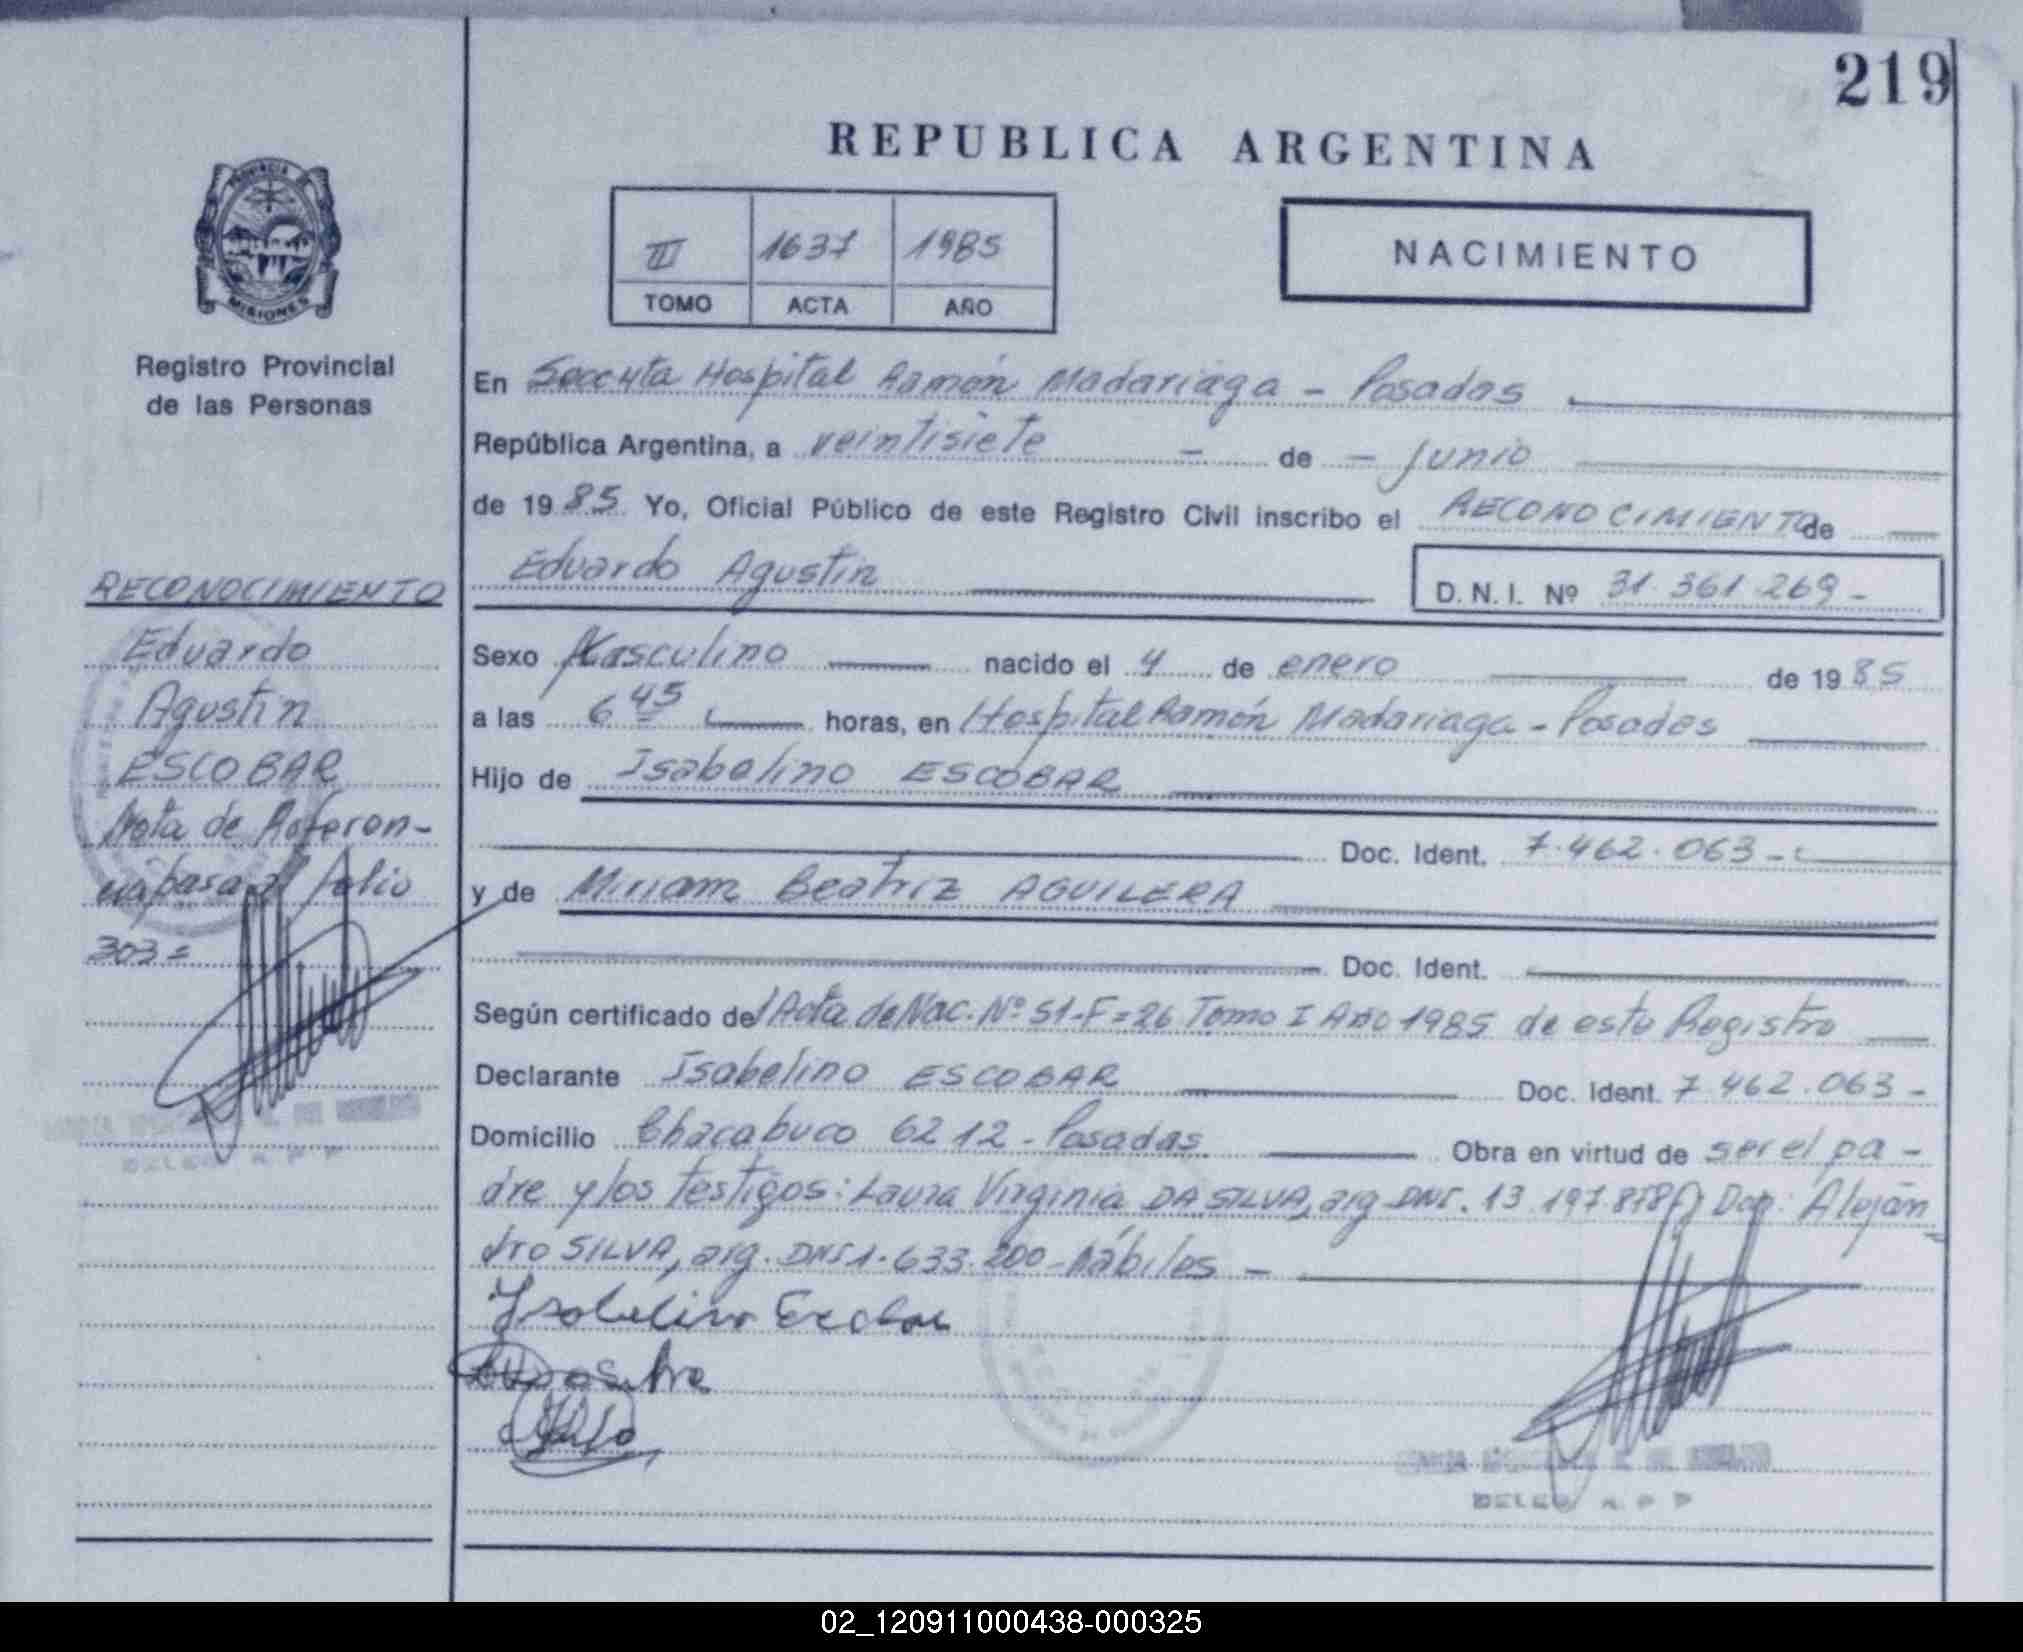 219
REPUBLICA ARGENTINA
PROVINCIA DE
MISIONES
Registro Provincial
de las Personas
III 1637 1985
TOMO ACTA AÑO
NACIMIENTO
En Seccta Hospital Ramón Madariaga - Posadas
República Argentina, a veintisiete - de - junio
de 1985 Yo, Oficial Público de este Registro Civil inscribo el RECONOCIMIENTO de
Eduardo Agustín
D. N. I. Nº 31.361.269-
Sexo Masculino nacido el 4 de enero de 1985
a las 6 45 horas, en Hospital Ramón Madariaga - Posadas
Hijo de Isabelino ESCOBAR
Doc. Ident. 7.462.063-
y de Miriam Beatriz AGUILERA
Doc. Ident.
Según certificado del Acta de Nac. Nº 51-F=26 Tomo I Año 1985 de este Registro
Declarante Isabelino ESCOBAR Doc. Ident. 7.462.063-
Domicilio Chacabuco 6212 - Posadas Obra en virtud de ser el pa-
dre y los testigos: Laura Virginia DA SILVA, arg. DNI. 13.197.878 Alejan
dro SILVA, arg. DNI 1.633.200 - hábiles -
Isabelino Escobar
RECONOCIMIENTO
Eduardo
Agustín
ESCOBAR
Nota de Referen-
cia pasa al folio
303=
02_120911000438-000325